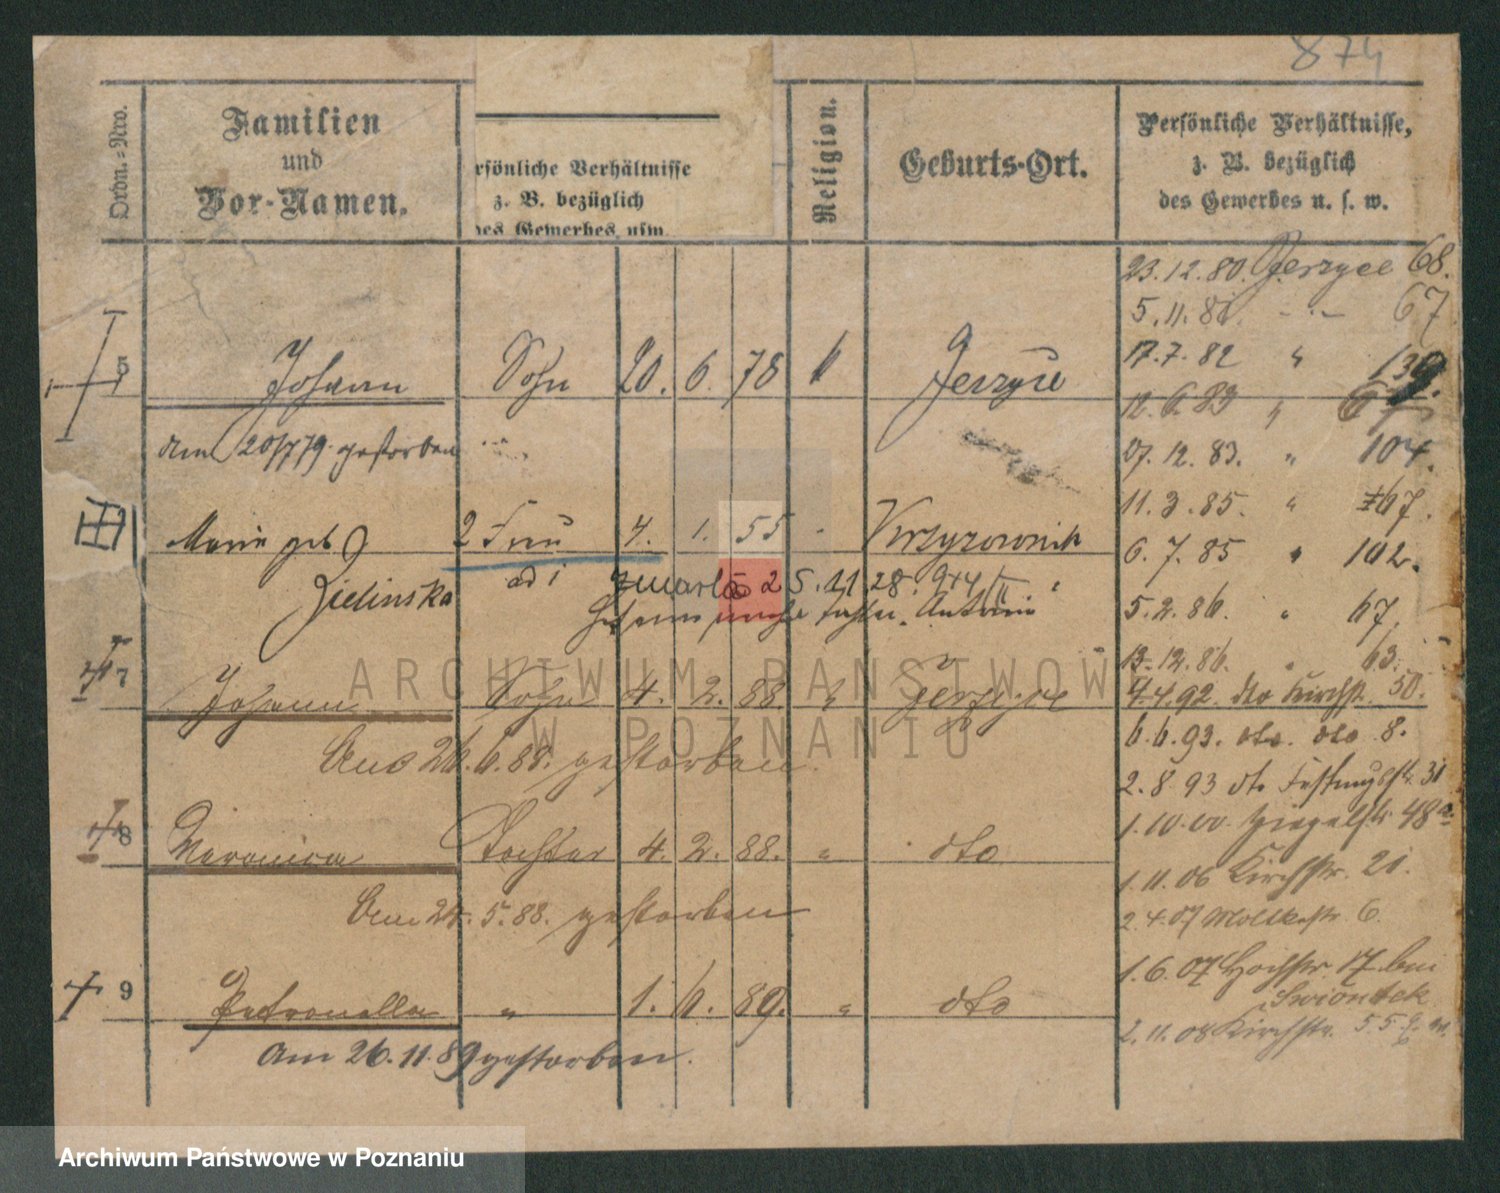 874
Ordn.-Nro.
Familien
und
Vor-Namen.
rsönliche Verhältnisse
z. B. bezüglich
des Gewerbes usw.
Religion.
Geburts-Ort.
Persönliche Verhältnisse,
z. B. bezüglich
des Gewerbes u. s. w.
23.12.80. Jerzyce 68.
5.11.81. - " - 67
17.7.82 " 139.
5 Johann Sohn 20. 6. 78 k Jerzyce
12.6.83 "
am 20/7 79. gestorben
07.12.83. " 104.
11.3.85. " 67.
Marie geb 2 Frau 4. 1. 55 - Krzyzownik
6.7.85 " 102.
Zielinska ad 1 zmarła 25.11.28.
Antonie
5.2.86. " 67.
13.12.86. " 63.
7 Johann Sohn 4. 2. 88. " Jerzyce
4.4.92. dto Kirchstr. 50.
6.6.93. dto. dto 8.
Am 26.6.88. gestorben.
2.8.93 dto Festungsstr. 31
1.10.00. Ziegelstr 48a
8 Veronica Tochter 4. 2. 88. " dto
1.11.06 Kirchstr. 21.
Am 24.5.88. gestorben
2.4.07 Moltkestr. 6.
1.6.07 Hochstr. 17. bei
Swiontek
9 Petronella " 1. 6. 89. " dto
2.11.08 Kirchstr.
Am 26.11.89 gestorben.
ARCHIWUM PAŃSTWOWE
W POZNANIU
Archiwum Państwowe w Poznaniu